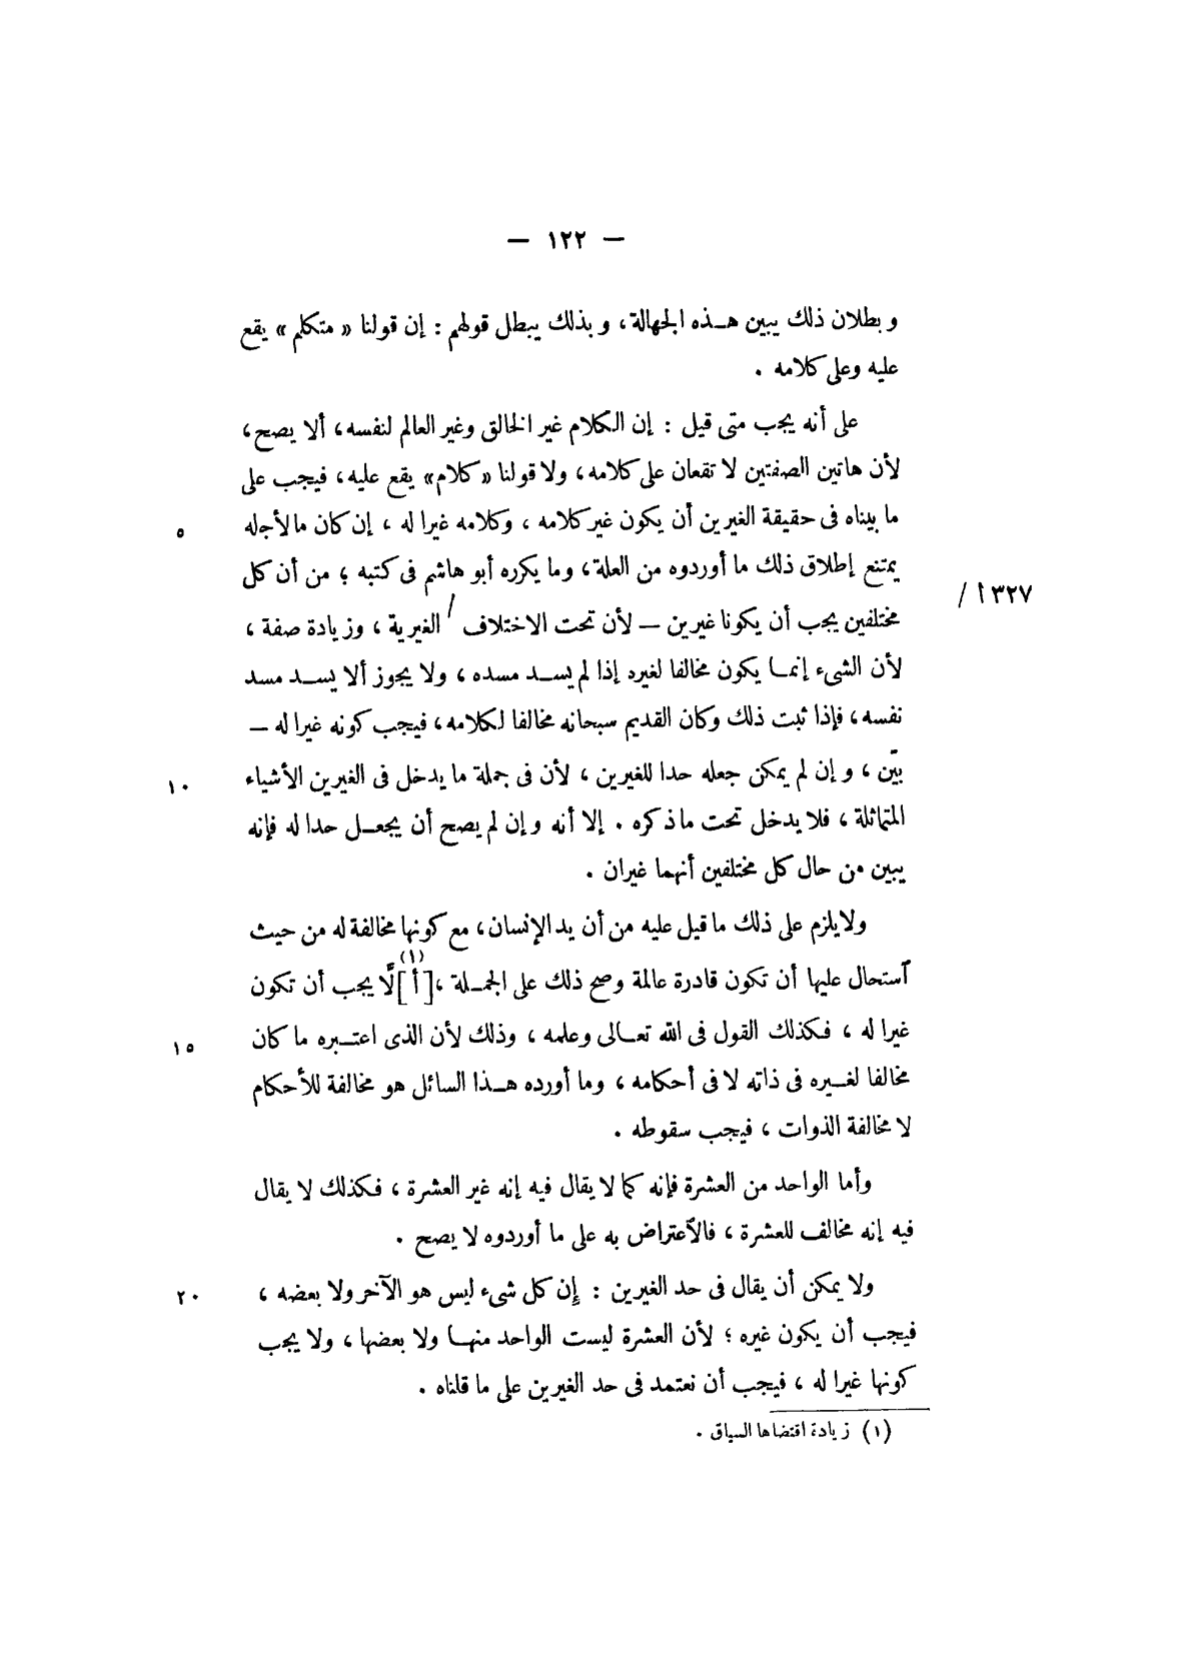 — ١٢٢ —
وبطلان ذلك يبين هذه الجهالة، وبذلك يبطل قولهم: إن قولنا «متكلم» يقع
عليه وعلى كلامه.
على أنه يجب متى قيل: إن الكلام غير الخالق وغير العالم لنفسه، ألا يصح،
لأن هاتين الصفتين لا تقعان على كلامه، ولا قولنا «كلام» يقع عليه، فيجب على
ما بيناه فى حقيقة الغيرين أن يكون غير كلامه، وكلامه غيرا له، إن كان ما لأجله
٥
يمتنع إطلاق ذلك ما أوردوه من العلة، وما يكرره أبو هاشم فى كتبه؛ من أن كل
١٣٢٧ /
مختلفين يجب أن يكونا غيرين — لأن تحت الاختلاف / الغيرية، وزيادة صفة،
لأن الشىء إنما يكون مخالفا لغيره إذا لم يسد مسده، ولا يجوز ألا يسد مسد
نفسه، فإذا ثبت ذلك وكان القديم سبحانه مخالفا لكلامه، فيجب كونه غيرا له —
بيّن، وإن لم يمكن جعله حدا للغيرين، لأن فى جملة ما يدخل فى الغيرين الأشياء
١٠
المتماثلة، فلا يدخل تحت ما ذكره. إلا أنه وإن لم يصح أن يجعل حدا له فإنه
يبين من حال كل مختلفين أنهما غيران.
ولا يلزم على ذلك ما قيل عليه من أن يد الإنسان، مع كونها مخالفة له من حيث
ٱستحال عليها أن تكون قادرة عالمة وصح ذلك على الجملة، [أ](١) لّا يجب أن تكون
غيرا له، فكذلك القول فى الله تعالى وعلمه، وذلك لأن الذى اعتبره ما كان
١٥
مخالفا لغيره فى ذاته لا فى أحكامه، وما أورده هذا السائل هو مخالفة للأحكام
لا مخالفة الذوات، فيجب سقوطه.
وأما الواحد من العشرة فإنه كما لا يقال فيه إنه غير العشرة، فكذلك لا يقال
فيه إنه مخالف للعشرة، فالٱعتراض به على ما أوردوه لا يصح.
ولا يمكن أن يقال فى حد الغيرين: إن كل شىء ليس هو الآخر ولا بعضه،
٢٠
فيجب أن يكون غيره؛ لأن العشرة ليست الواحد منها ولا بعضها، ولا يجب
كونها غيرا له، فيجب أن نعتمد فى حد الغيرين على ما قلناه.
(١) زيادة اقتضاها السياق.